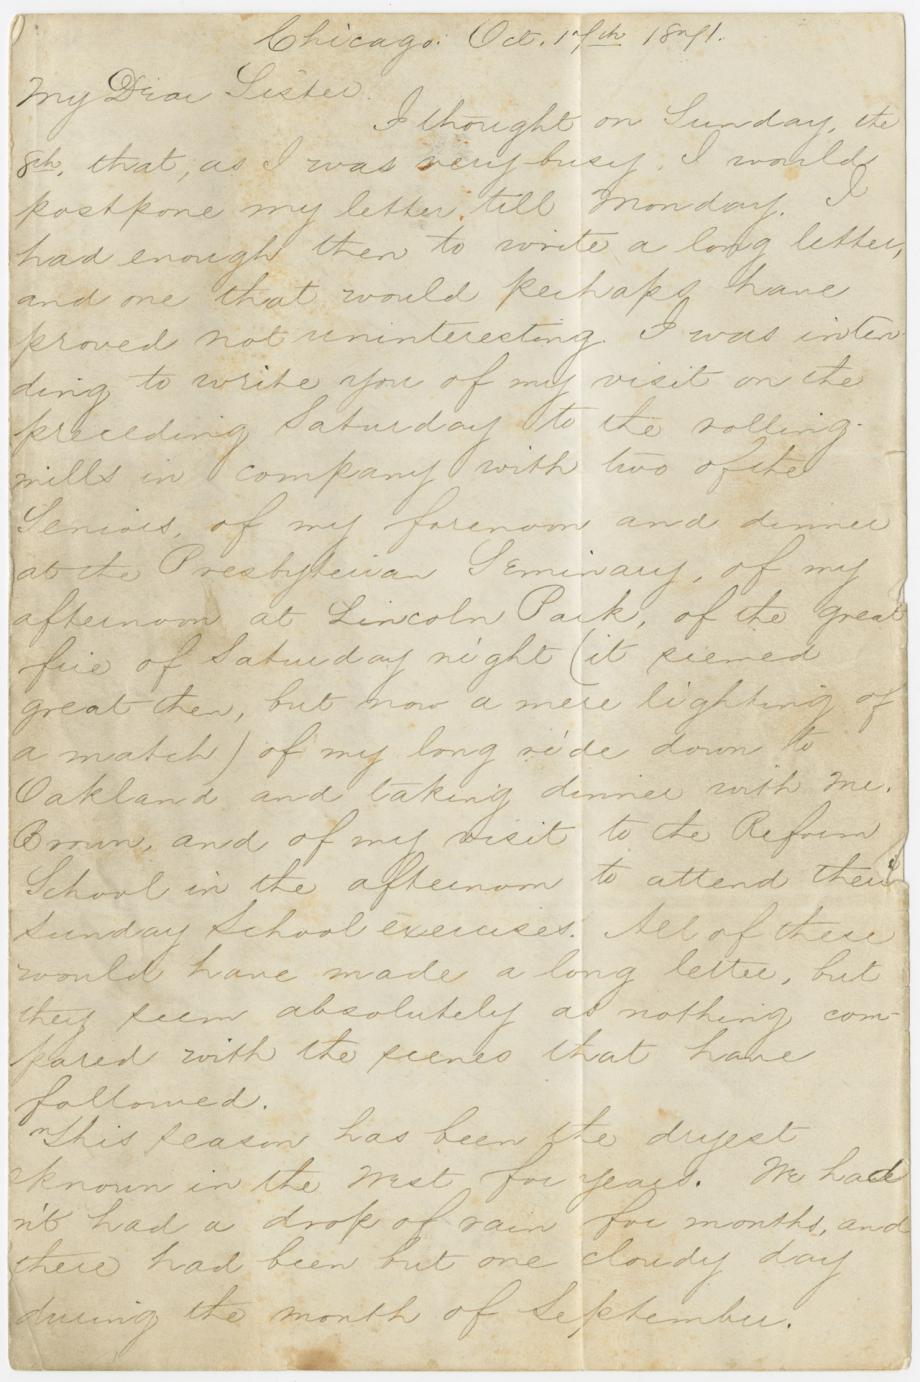 Chicago. Oct. 17th 1871.
My Dear Sister.
I thought on Sunday, the
8th, that, as I was very busy, I would
postpone my letter till Monday. I
had enough then to write a long letter,
and one that would perhaps have
proved not uninteresting. I was inten-
ding to write you of my visit on the
preceding Saturday to the rolling-
mills in company with two of the
Seniors, of my forenoon and dinner
at the Presbyterian Seminary, of my
afternoon at Lincoln Park, of the great
fire of Saturday night (it seemed
great then, but now a mere lighting of
a match) of my long ride down to
Oakland and taking dinner with Mr.
Brown, and of my visit to the Reform
School in the afternoon to attend their
Sunday School exercises. All of these
would have made a long letter, but
they seem absolutely as nothing com-
pared with the scenes that have
followed.
This season has been the dryest
known in the West for years. We had
n't had a drop of rain for months, and
there had been but one cloudy day
during the month of September.